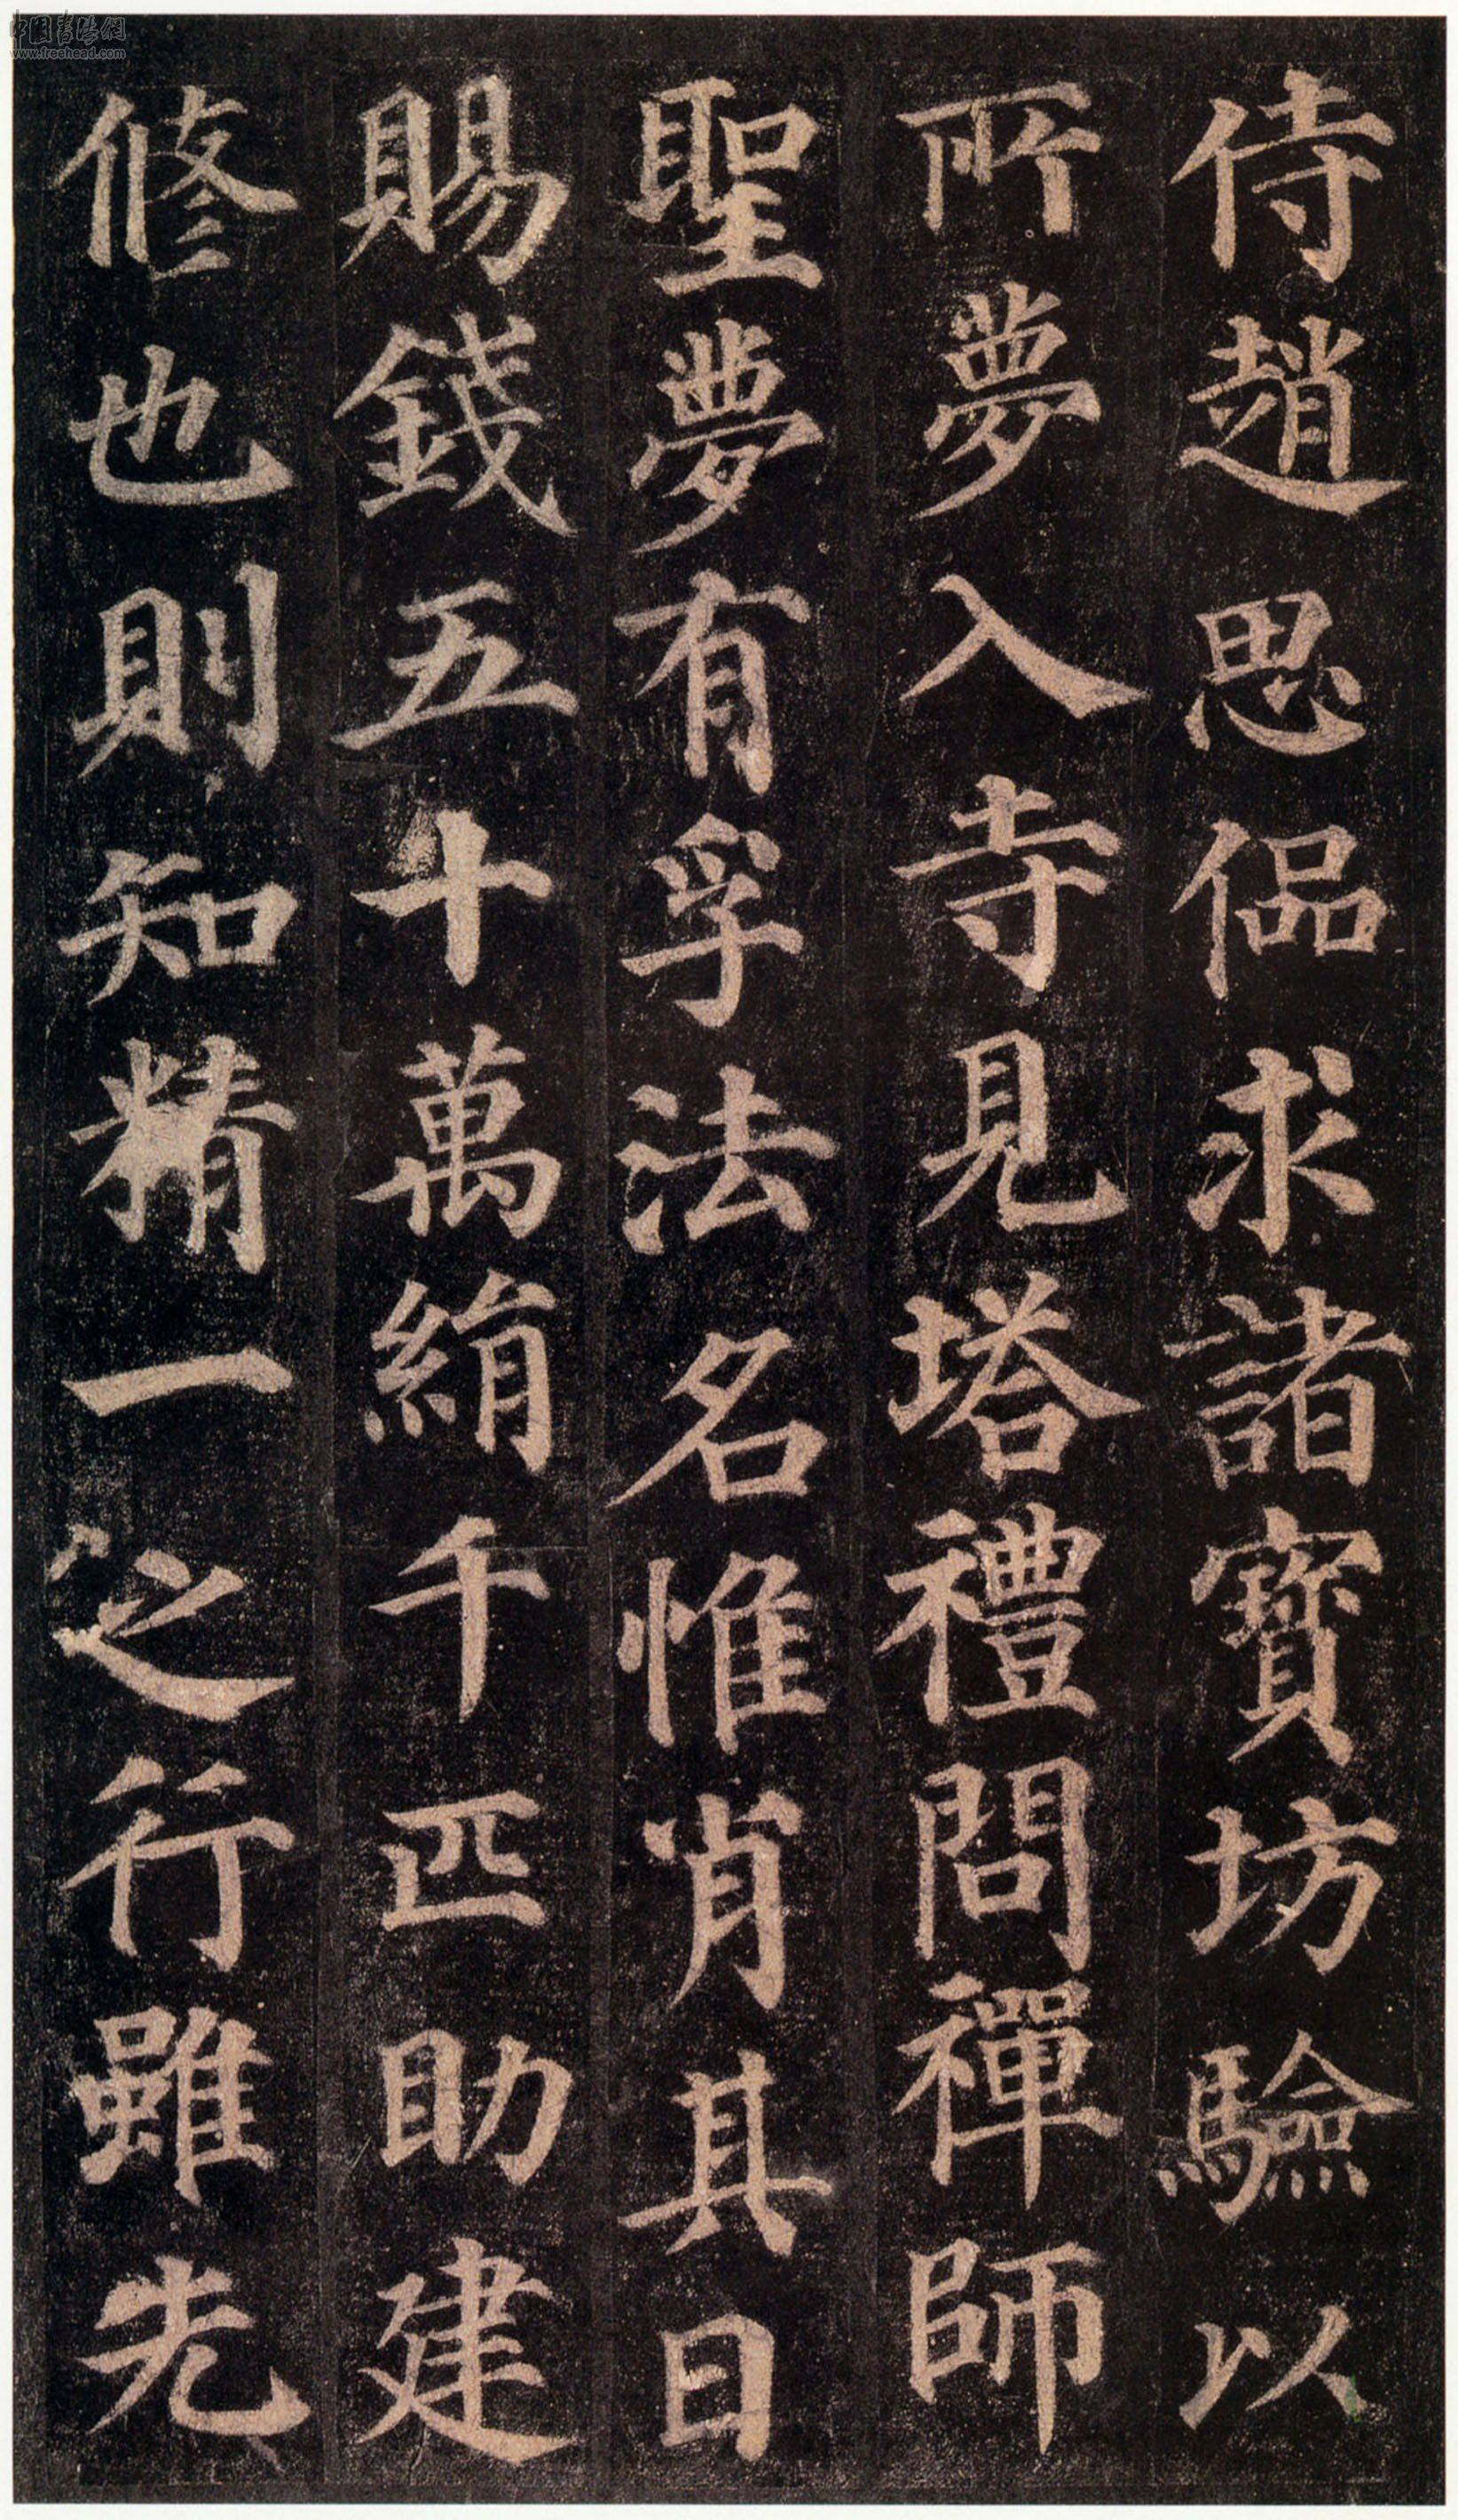 中国书法网
www.freehead.com
侍趙思偘求諸寶坊驗以
所夢入寺見塔禮問禪師
聖夢有孚法名惟肖其日
賜錢五十萬絹千匹助建
修也則知精一之行雖先